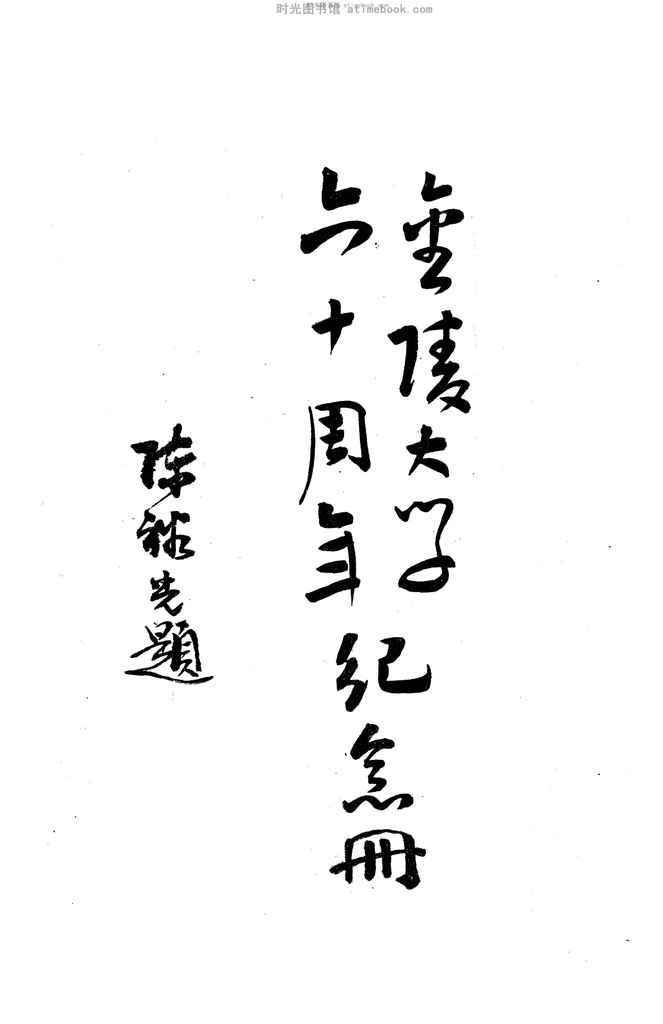 时光图书馆 atimebook.com
金陵大学
六十周年
紀念冊
陈裕光題